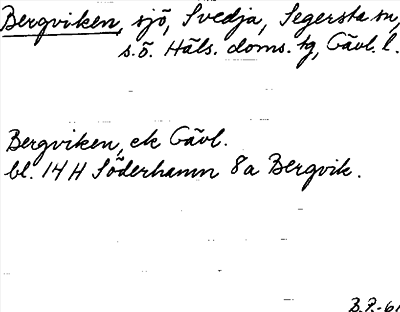 Bergviken, sjö, Svedja, Segersta sn,
s.ö. Häls. doms. tg, Gävl. l.
Bergviken, ek Gävl.
bl. 14 H Söderhamn 8a Bergvik.
B.P.-61